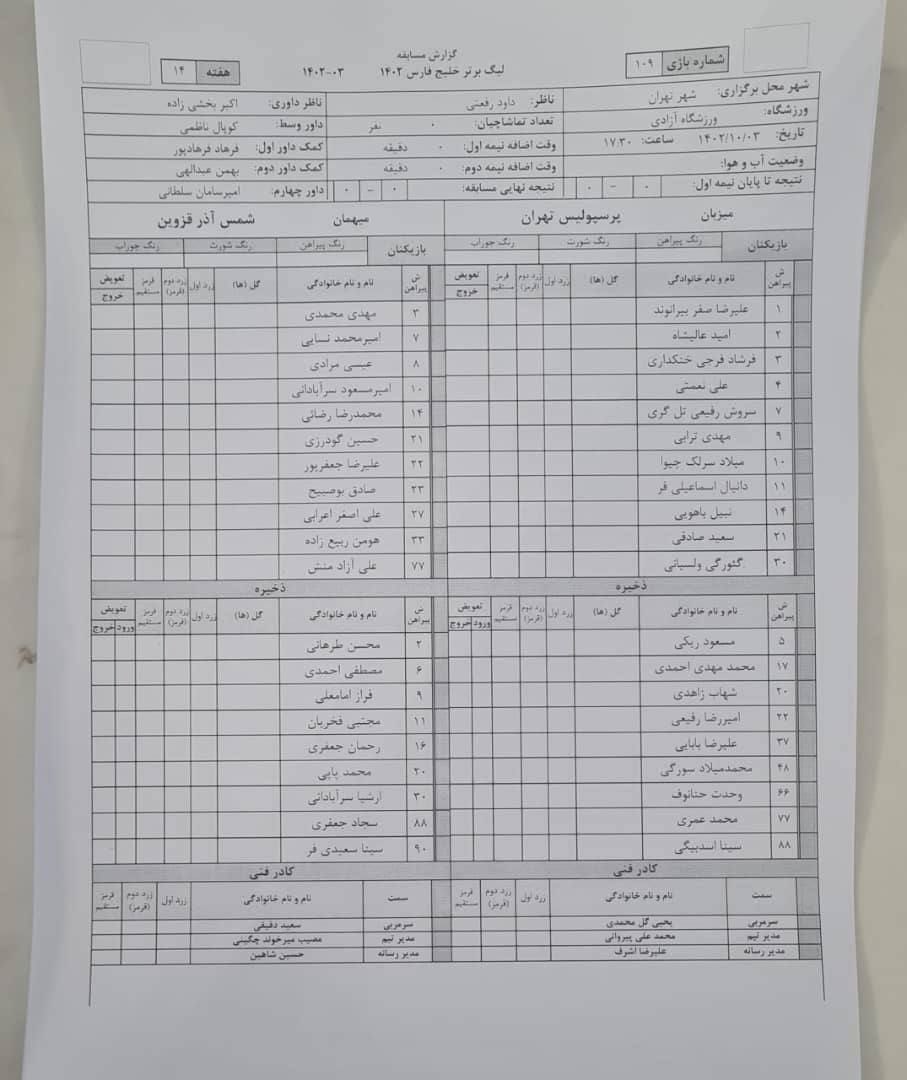 گزارش مسابقه
شماره بازی ۱۰۹
لیگ برتر خلیج فارس ۱۴۰۲ ۱۴۰۲-۰۳
هفته ۱۴
شهر محل برگزاری: شهر تهران
ناظر: داود رفعتی
ناظر داوری: اکبر بخشی زاده
ورزشگاه: ورزشگاه آزادی
تعداد تماشاچیان: ۰ نفر
داور وسط: کوپال ناظمی
تاریخ: ۱۴۰۲/۱۰/۰۳ ساعت: ۱۷:۳۰
وقت اضافه نیمه اول: ۰ دقیقه
کمک داور اول: فرهاد فرهادپور
وضعیت آب و هوا:
وقت اضافه نیمه دوم: ۰ دقیقه
کمک داور دوم: بهمن عبدالهی
نتیجه تا پایان نیمه اول: ۰ – ۰
نتیجه نهایی مسابقه: ۰ – ۰
داور چهارم: امیرسامان سلطانی
میزبان پرسپولیس تهران
میهمان شمس آذر قزوین
بازیکنان رنگ پیراهن رنگ شورت رنگ جوراب
بازیکنان رنگ پیراهن رنگ شورت رنگ جوراب
ش پیراهن نام و نام خانوادگی گل (ها) زرد اول زرد دوم (قرمز) قرمز مستقیم تعویض خروج
ش پیراهن نام و نام خانوادگی گل (ها) زرد اول زرد دوم (قرمز) قرمز مستقیم تعویض خروج
۱ علیرضا صفر بیرانوند ۳ مهدی محمدی
۲ امید عالیشاه ۷ امیرمحمد نسایی
۳ فرشاد فرجی خنکداری ۸ عیسی مرادی
۴ علی نعمتی ۱۰ امیرمسعود سرآبادانی
۷ سروش رفیعی تل گری ۱۴ محمدرضا رضائی
۹ مهدی ترابی ۲۱ حسین گودرزی
۱۰ میلاد سرلک جیوا ۲۲ علیرضا جعفرپور
۱۱ دانیال اسماعیلی فر ۲۳ صادق بوصبیح
۱۴ نبیل باهویی ۲۷ علی اصغر اعرابی
۲۱ سعید صادقی ۳۳ هومن ربیع زاده
۳۰ گئورگی ولسیانی ۷۷ علی آزاد منش
ذخیره ذخیره
ش پیراهن نام و نام خانوادگی گل (ها) زرد اول زرد دوم (قرمز) قرمز مستقیم تعویض ورود خروج
ش پیراهن نام و نام خانوادگی گل (ها) زرد اول زرد دوم (قرمز) قرمز مستقیم تعویض ورود خروج
۵ مسعود ریکی ۲ محسن طرهانی
۱۷ محمد مهدی احمدی ۶ مصطفی احمدی
۲۰ شهاب زاهدی ۹ فراز امامعلی
۲۲ امیررضا رفیعی ۱۱ مجتبی فخریان
۳۷ علیرضا بابایی ۱۶ رحمان جعفری
۴۸ محمدمیلاد سورگی ۲۰ محمد پاپی
۶۶ وحدت حنانوف ۳۰ ارشیا سرآبادانی
۷۷ محمد عمری ۸۸ سجاد جعفری
۸۸ سینا اسدبیگی ۹۰ سینا سعیدی فر
کادر فنی کادر فنی
سمت نام و نام خانوادگی زرد اول زرد دوم (قرمز) قرمز مستقیم
سمت نام و نام خانوادگی زرد اول زرد دوم (قرمز) قرمز مستقیم
سرمربی یحیی گل محمدی سرمربی سعید دقیقی
مدیر تیم محمد علی پیروانی مدیر تیم مصیب میرخوند چگینی
مدیر رسانه علیرضا اشرف مدیر رسانه حسین شاهین